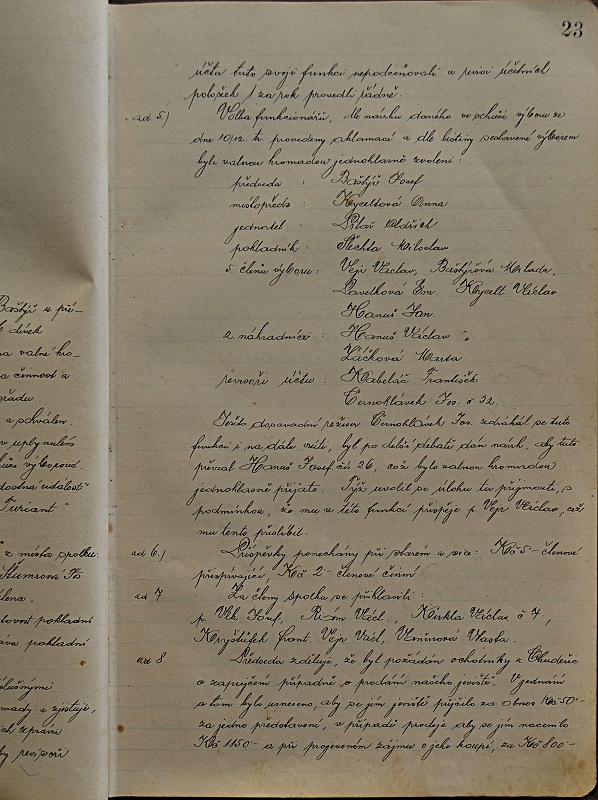 23
účtu tuto svoji funkci nepodceňovali a revisi účetních
položek / za rok provedli řádně.
ad 5.) Volba funkcionářů, dle návrhu daného ve schůzi výboru ze
dne 10/12. tr. provedeny aklamací a dle listiny sestavené výborem
byli valnou hromadou jednohlasně zvoleni:
předseda : Baštýř Josef
místopředs : Kyceltová Anna
jednatel : Pilař Oldřich
pokladník : Těchla Miloslav
5. členů výboru: Vejr Václav, Baštýřová Milada,
Pavelková Em. Kycelt. Václav
Hanuš Jan.
2. náhradníci : Hanuš Václav
Žáčková Marta
revisoři účtu : Kabeláč František
Černohlávek Jos. č 32.
Ježto dosavadní režiser Černohlávek Jos. zdráhal se tuto
funkci i na dále vzíti, byl po delší debatě dán návrh, aby tuto
převzal Hanuš Josef čís 26, což bylo valnou hromadou
jednohlasně přijato. Týž uvolil se úlohu tu přijmouti, s
podmínkou, že mu v této funkci přispěje p. Vejr Václav, což
mu tento přislíbil.
ad 6.) Příspěvky ponechány při starém a sice: Kč 5- členové
přispívající, Kč 2- členové činní
ad 7. Za členy spolku se přihlásili:
p. Vlk Josef, Rám Václ., Kirkla Václav č 7.,
Kryštůfek Frant. Vejr Václ, Vlasta.
ad 8. Předseda zděluje, že byl požádán ochotníky z Chuděřic
o zapůjčení případně o prodání našeho jeviště. V jednání
o tom bylo usneseno, aby se jim jeviště půjčilo za obnos Kč 50-
za jedno představení, v případě prodeje aby se jim nacenilo
Kč 1150- a při projeveném zájmu o jeho koupi, za Kč 800-
Baštýř a pří-
dívek
valné hro-
činnost a
a schválen.
v uplynulém
výborové.
událost"
"Furiant"
z místa spolku.
pokladní
pokladní
a zjištuje,
revisoři